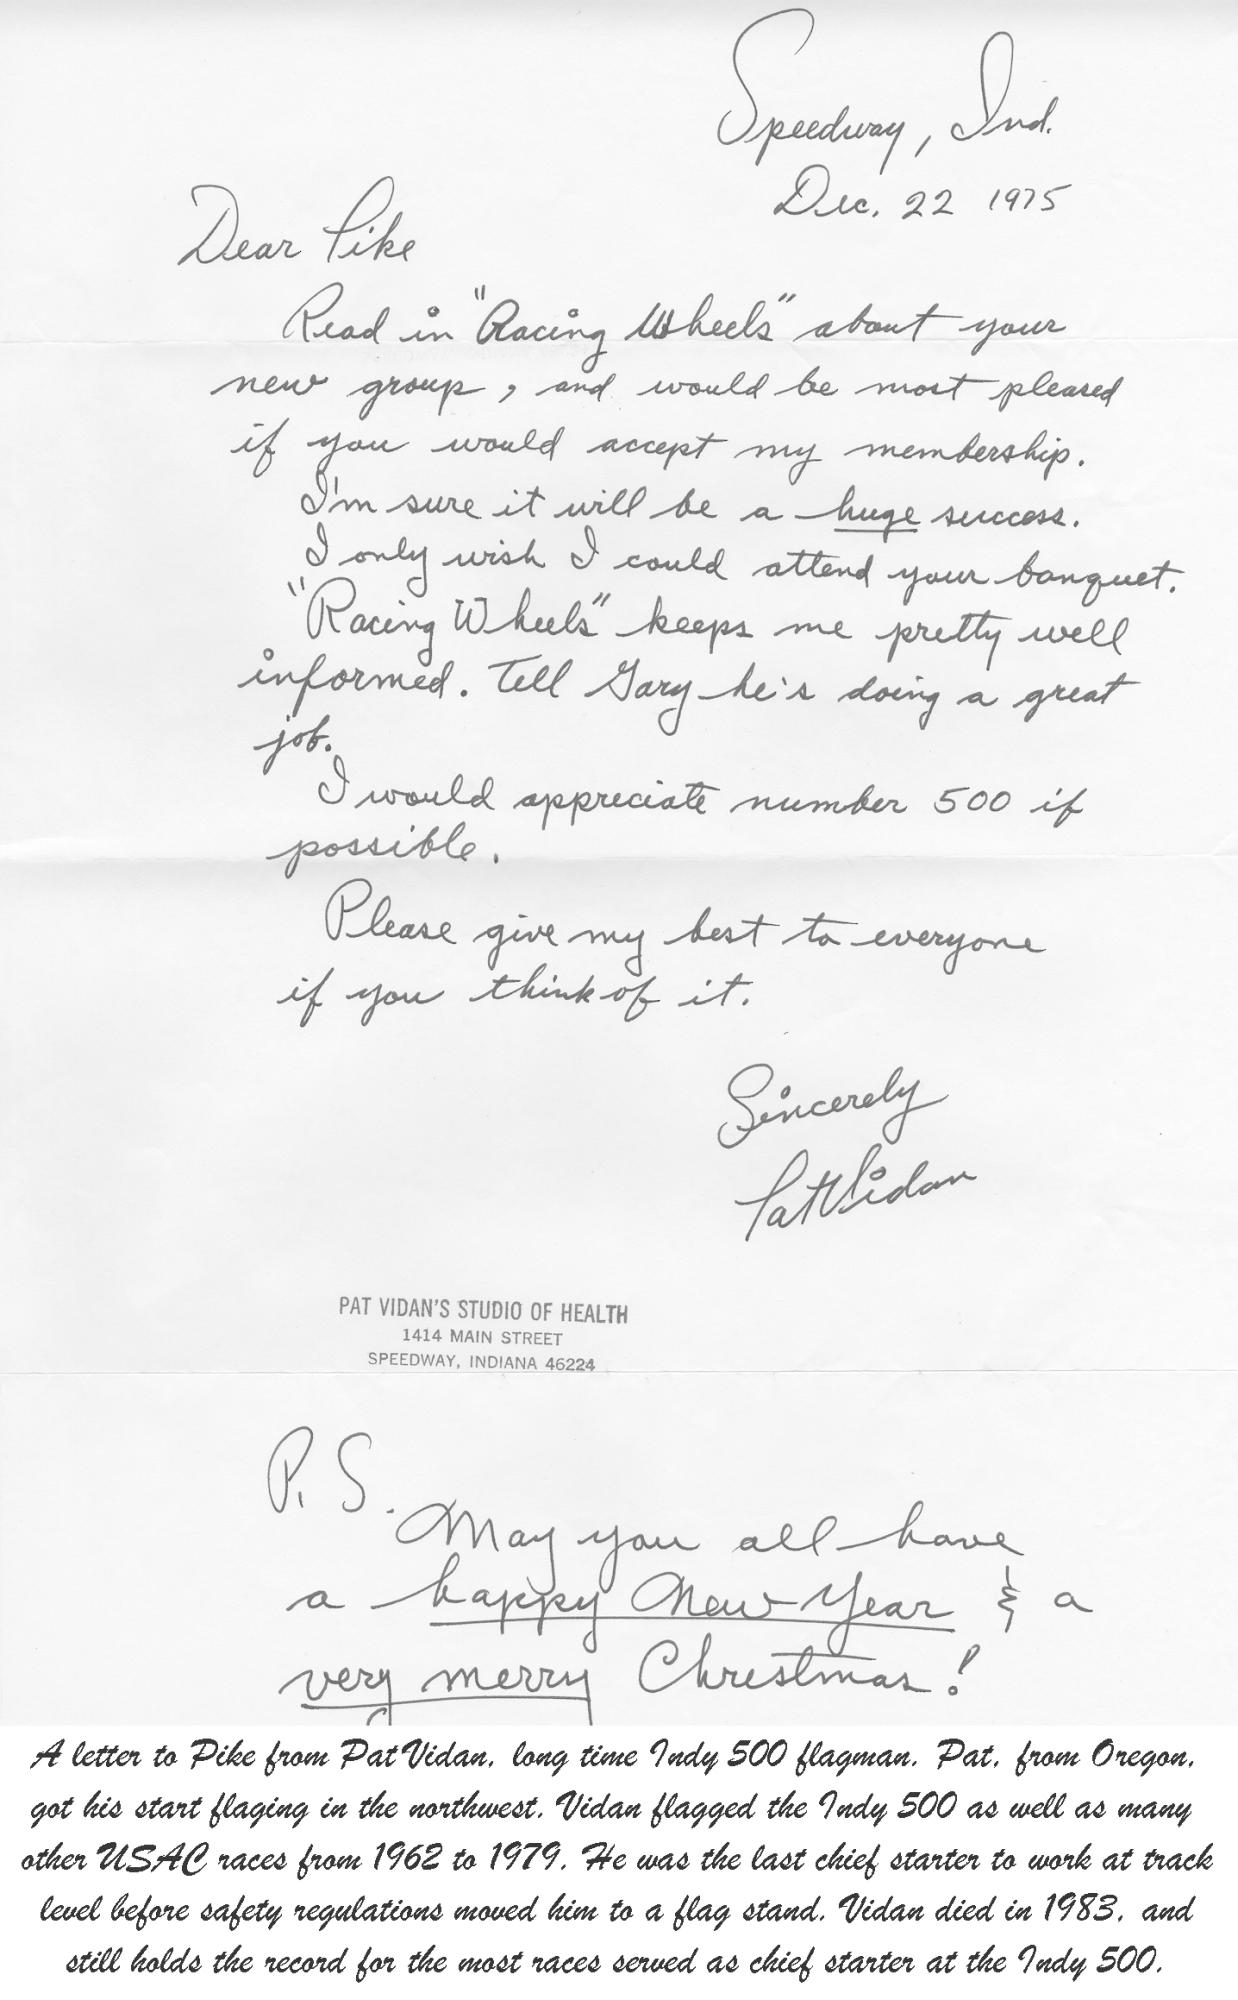 Speedway, Ind.
Dec. 22 1975
Dear Pike
Read in "Racing Wheels" about your
new group, and would be most pleased
if you would accept my membership.
I'm sure it will be a huge success.
I only wish I could attend your banquet.
"Racing Wheels" keeps me pretty well
informed. Tell Gary he's doing a great
job.
I would appreciate number 500 if
possible.
Please give my best to everyone
if you think of it.
Sincerely
Pat Vidan
PAT VIDAN'S STUDIO OF HEALTH
1414 MAIN STREET
SPEEDWAY, INDIANA 46224
P.S.
May you all have
a happy New Year & a
very merry Christmas!
A letter to Pike from Pat Vidan, long time Indy 500 flagman. Pat, from Oregon,
got his start flaging in the northwest. Vidan flagged the Indy 500 as well as many
other USAC races from 1962 to 1979. He was the last chief starter to work at track
level before safety regulations moved him to a flag stand. Vidan died in 1983, and
still holds the record for the most races served as chief starter at the Indy 500.